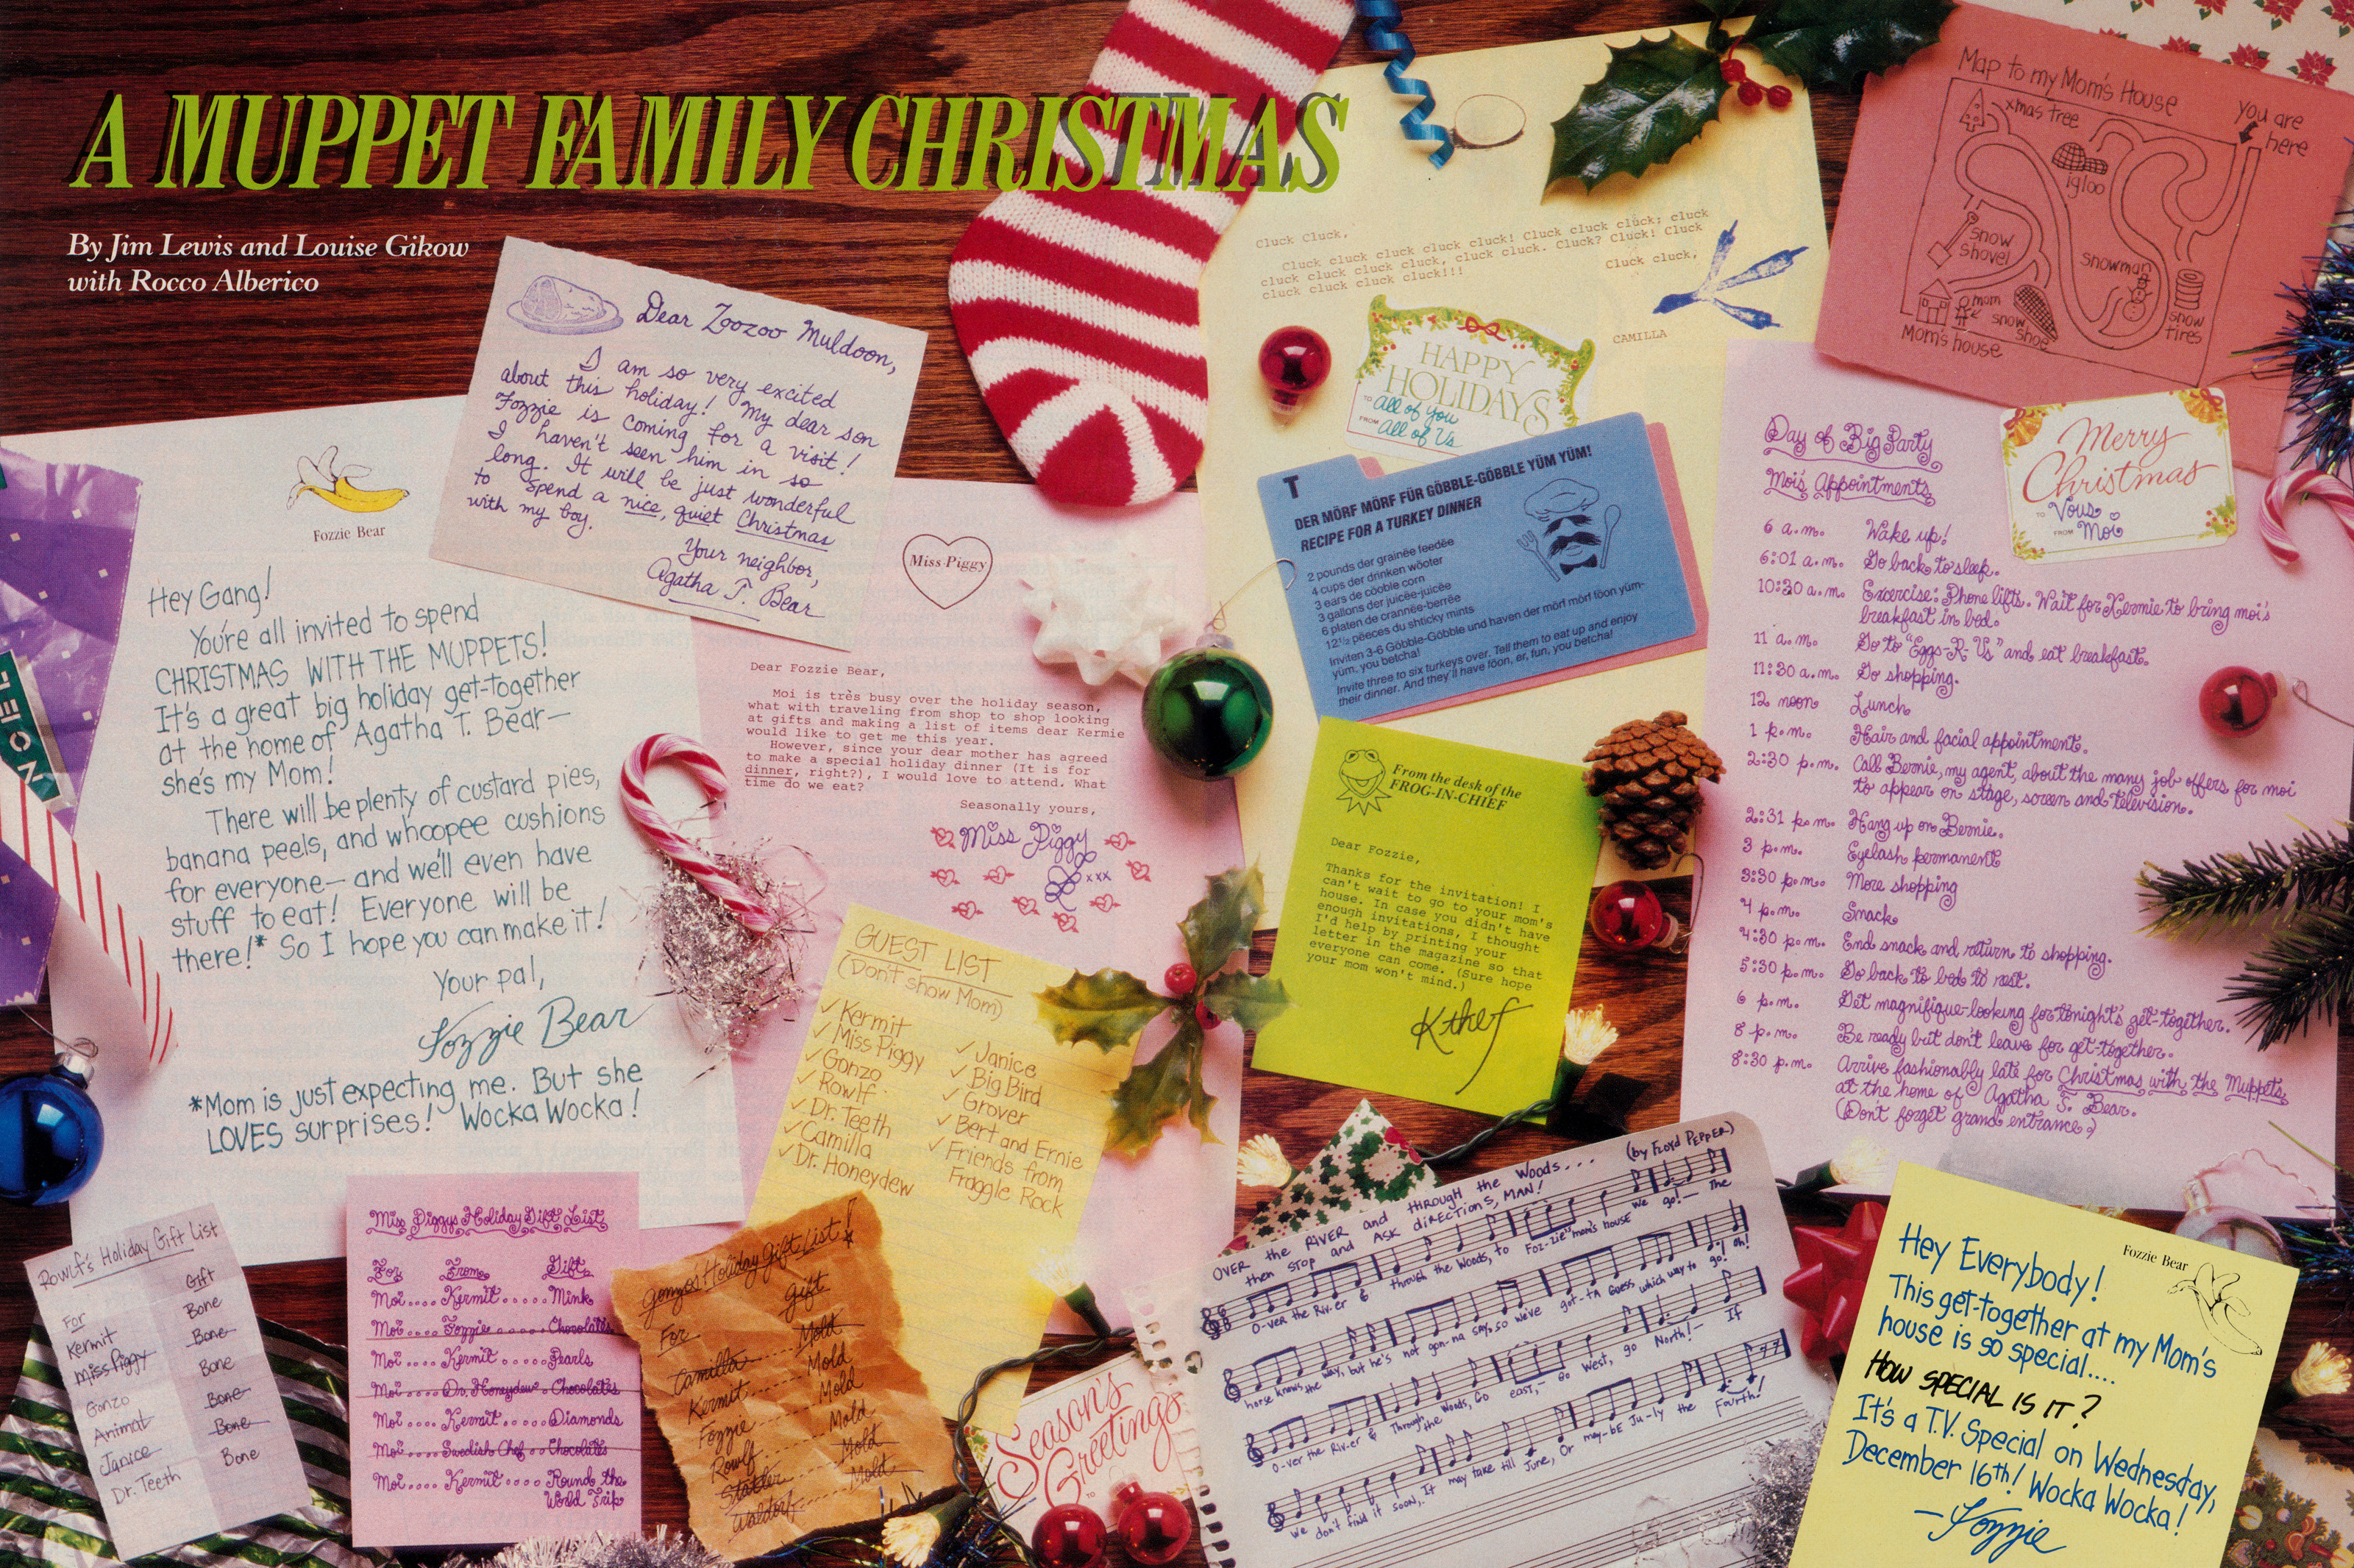 A MUPPET FAMILY CHRISTMAS
By Jim Lewis and Louise Gikow
with Rocco Alberico
Dear Zoozoo Muldoon,
I am so very excited
about this holiday! My dear son
Fozzie is coming for a visit!
I haven't seen him in so
long. It will be just wonderful
to spend a nice, quiet Christmas
with my boy.
Your neighbor,
Agatha T. Bear
Fozzie Bear
Hey Gang!
You're all invited to spend
CHRISTMAS WITH THE MUPPETS!
It's a great big holiday get-together
at the home of Agatha T. Bear—
she's my Mom!
There will be plenty of custard pies,
banana peels, and whoopee cushions
for everyone—and we'll even have
stuff to eat! Everyone will be
there!* So I hope you can make it!
Your pal,
Fozzie Bear
*Mom is just expecting me. But she
LOVES surprises! Wocka Wocka!
NOEL
Miss Piggy
Dear Fozzie Bear,
Moi is très busy over the holiday season,
what with traveling from shop to shop looking
at gifts and making a list of items dear Kermie
would like to get me this year.
However, since your dear mother has agreed
to make a special holiday dinner (It is for
dinner, right?), I would love to attend. What
time do we eat?
Seasonally yours,
Miss Piggy
xxx
GUEST LIST
(Don't show Mom)
✓ Kermit
✓ Miss Piggy
✓ Gonzo
✓ Rowlf
✓ Dr. Teeth
✓ Camilla
✓ Dr. Honeydew
✓ Janice
✓ Big Bird
✓ Grover
✓ Bert and Ernie
✓ Friends from
Fraggle Rock
Rowlf's Holiday Gift List
For Gift
Kermit Bone
Miss Piggy Bone
Gonzo Bone
Animal Bone
Janice Bone
Dr. Teeth Bone
Miss Piggy's Holiday Gift List
For From Gift
Moi.... Kermit..... Mink
Moi.... Fozzie..... Chocolates
Moi.... Kermit..... Pearls
Moi.... Dr. Honeydew.. Chocolates
Moi.... Kermit..... Diamonds
Moi.... Swedish Chef.. Chocolates
Moi.... Kermit.... Round the
World Trip
Gonzo's Holiday Gift List!
For Gift
Camilla Mold
Kermit Mold
Fozzie Mold
Rowlf Mold
Statler Mold
Waldorf Mold
Season's
Greetings
TO
Cluck Cluck,
Cluck cluck cluck cluck cluck! Cluck cluck cluck; cluck
cluck cluck cluck cluck, cluck cluck. Cluck? Cluck! Cluck
cluck cluck cluck cluck!!!
Cluck cluck,
CAMILLA
HAPPY
HOLIDAYS
TO All of You
FROM All of Us
T
DER MÖRF MÖRF FÜR GÖBBLE-GÖBBLE YÜM YÜM!
RECIPE FOR A TURKEY DINNER
2 pounds der grainée feedée
4 cups der drinken wöoter
3 ears de cööble corn
3 gallons der juicëe-juicëe
6 platen de crannëe-berrëe
12½ pëeces du shticky mints
Inviten 3-6 Göbble-Göbble und haven der mörf mörf föon yüm-
yüm, you betcha!
Invite three to six turkeys over. Tell them to eat up and enjoy
their dinner. And they'll have föon, er, fun, you betcha!
From the desk of the
FROG-IN-CHIEF
Dear Fozzie,
Thanks for the invitation! I
can't wait to go to your mom's
house. In case you didn't have
enough invitations, I thought
I'd help by printing your
letter in the magazine so that
everyone can come. (Sure hope
your mom won't mind.)
K thef
Map to my Mom's House
You are
here
xmas tree
igloo
snow
shovel
snowman
mom
snow
shoe
snow
tires
Mom's house
Merry
Christmas
TO Vous
FROM Moi
Day of Big Party
Moi's Appointments
6 a.m. Wake up!
6:01 a.m. Go back to sleep.
10:30 a.m. Excercise: Phone lifts. Wait for Kermie to bring moi's
breakfast in bed.
11 a.m. Go to "Eggs-R-Us" and eat breakfast.
11:30 a.m. Go shopping.
12 noon Lunch
1 p.m. Hair and facial appointment.
2:30 p.m. Call Bernie, my agent, about the many job offers for moi
to appear on stage, screen and television.
2:31 p.m. Hang up on Bernie.
3 p.m. Eyelash permanent
3:30 p.m. More shopping
4 p.m. Snack
4:30 p.m. End snack and return to shopping.
5:30 p.m. Go back to bed to rest.
6 p.m. Get magnifique-looking for tonight's get-together.
8 p.m. Be ready but don't leave for get-together.
8:30 p.m. Arrive fashionably late for Christmas with the Muppets
at the home of Agatha T. Bear.
(Don't forget grand entrance.)
OVER the RIVER and through the Woods...
then STOP and ASK diRECTiONS, MAN!
(by Floyd Pepper)
O-ver the Riv-er & through the Woods, to Foz-zie mom's house we go!— The
horse knows the way, but he's not gon-na say, so we've got-tA Guess which way to go! Oh!
O-ver the Riv-er & Through the Woods, Go east,— Go West, go North!— If
we don't find it soon, It may take till June, Or may-bE Ju-ly the Fourth!
Fozzie Bear
Hey Everybody!
This get-together at my Mom's
house is so special....
HOW SPECIAL IS IT?
It's a T.V. Special on Wednesday,
December 16th! Wocka Wocka!
—Fozzie